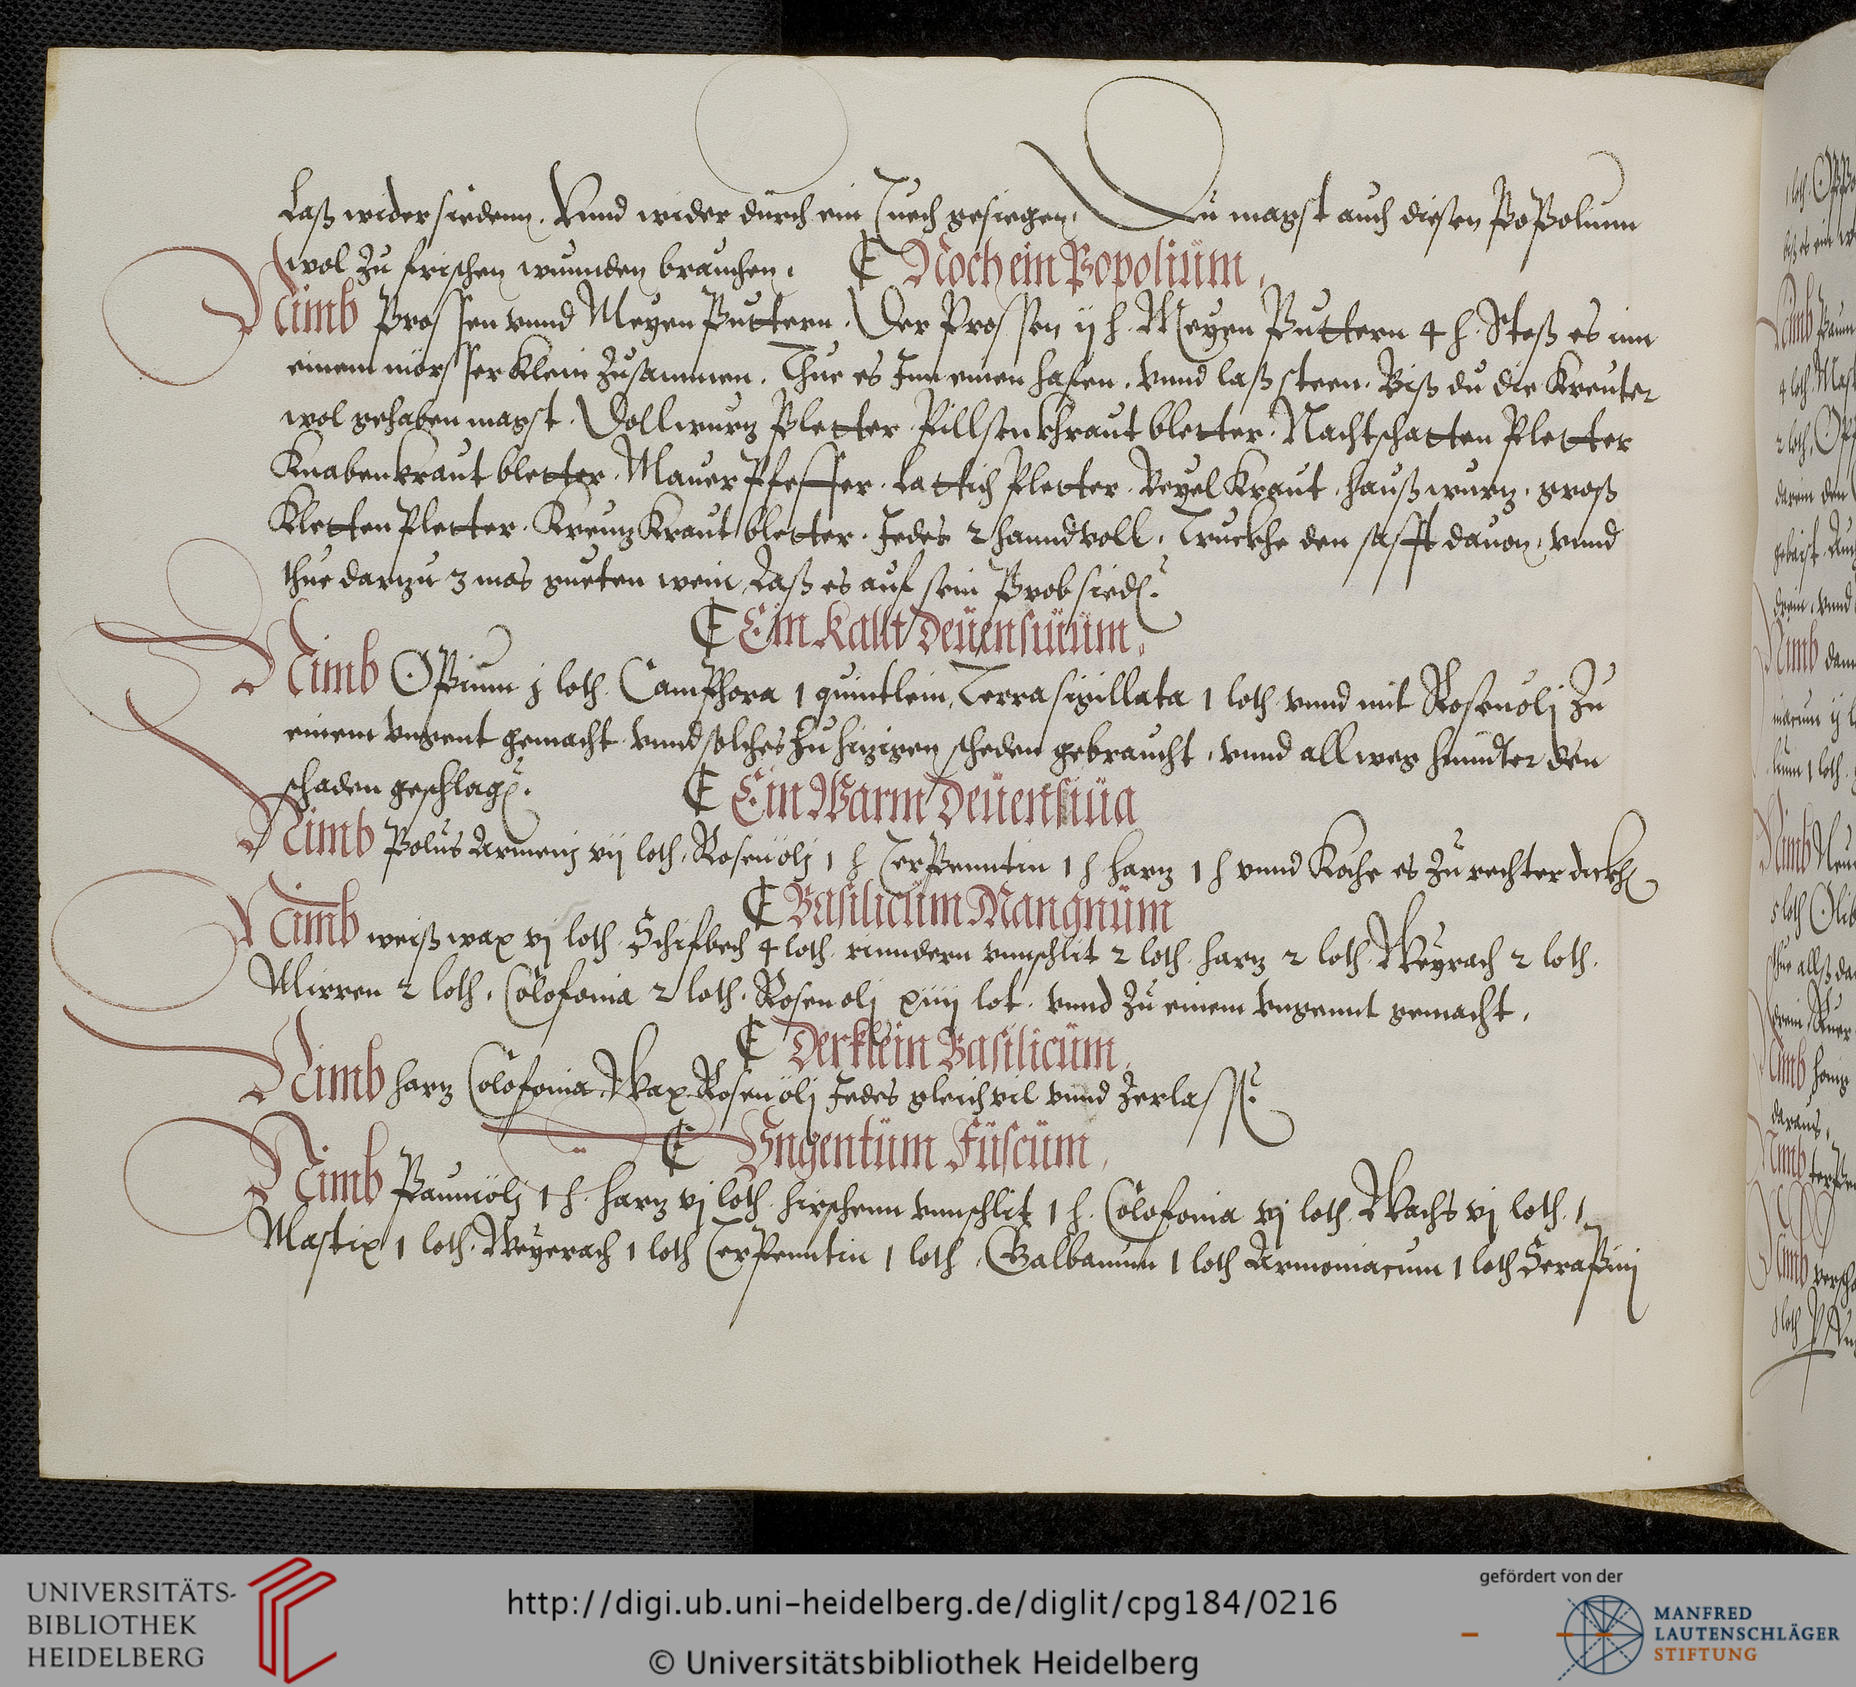 Laß wider siedenn. Vnnd wider dürch ein Tuech gesiegen, Du magst auch diesen Popolium
wol zu frischen wunnden brauchen. ¶ Noch ein Popolium,
Nimb Prossen vnnd Meyen Puttern. Der Prossen ij h. Meyen Puttern 4 h. Stoß es inn
einem mörsser klein zusammen. Thue es Inn einen hafen, vnnd laß steen. Biß du die Kreuter
wol gehaben magst. Vollwurz Pletter. Pillsenkhraut bletter. Nachtschatten Pletter
Knabenkraut bletter. Mauer Pfeffer. Lattich Pletter. Veyel Kraut. haußwurz. groß
Kletten Pletter. Kreuz Kraut bletter. Jedes 2 hanndvoll. Truckhe den safft dauon, vnnd
thue darzu 3 mas gueten wein Laß es auf sein Prob sied.
¶ Ein Kallt Deuensiuum,
Nimb Opium j loth. Camphora 1 quintlein, Terra sigillata 1 loth vnnd mit Rosenölj zu
einem vngent gemacht vnnd solches zu hizigen scheden gebraucht, vnnd allweg hinndter den
schaden geschlag.
¶ Ein Warm Deuensiua
Nimb Polus Armenj vij loth. Rosenölj 1 h Terpenntin 1 h harz 1 h vnnd Koche es zu rechter dickh
¶ Basilicum Mangnum
Nimb weiß wax vj loth Schifbech 4 loth. rinndern vnnschlit 2 loth. harz 2 loth. Weyrach 2 loth.
Mirren 2 loth, Colofonia 2 loth. Rosenolj xiiij lot. vnnd zu einem vngennt gemacht.
¶ Der klein Basilicum,
Nimb harz Colofonia Wax Rosenölj Jedes gleich vil vnnd zerlass.
¶ Vngentum Fuscum,
Nimb Paumölj 1 h. harz vj loth. hirschenn vnnschlit 1 h. Colofonia vj loth. Wachs vj loth.
Mastix 1 loth. Weyerach 1 loth Terpenntin 1 loth. Galbanum 1 loth Armoniacum 1 loth Serapinj
UNIVERSITÄTS-
BIBLIOTHEK
HEIDELBERG
http://digi.ub.uni-heidelberg.de/diglit/cpg184/0216
© Universitätsbibliothek Heidelberg
gefördert von der
MANFRED
LAUTENSCHLÄGER
STIFTUNG